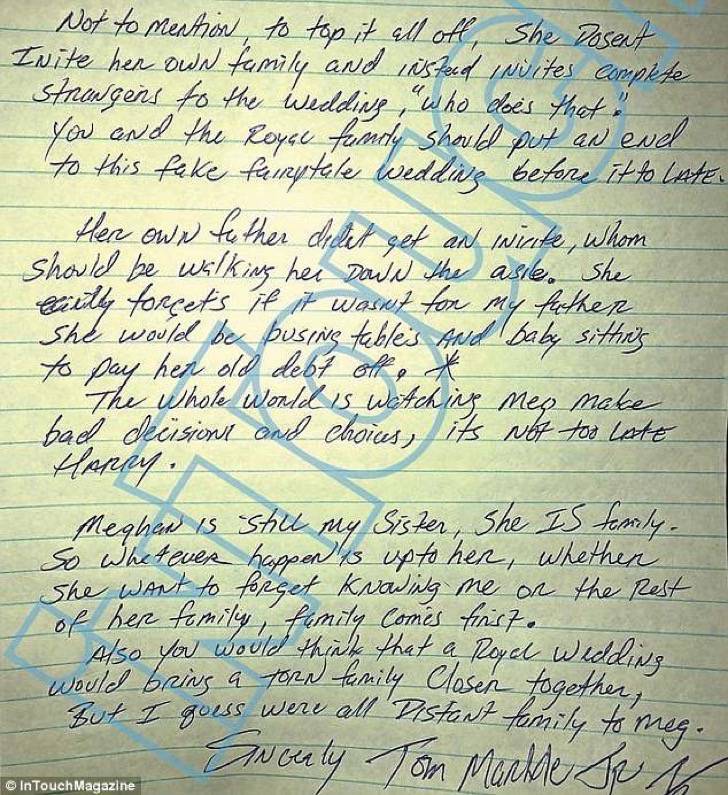 Not to mention, to top it all off, She Dosent
Inite her own family and instead invites complete
Strangers to the wedding, "who does that".
You and the Royal family should put an end
to this fake fairytale wedding before it to LATE.
Her own father didnt get an inivite, whom
should be walking her DOWN the asile. She
forgets if it wasnt for my father
She would be busing tables AND baby sitting
to pay her old debt off. *
The whole world is watching Meg make
bad decisions and choices, its NOT too LATE
HARRY.
Meghan is still my Sister, She IS family.
So whatever happen is upto her, whether
She WANT to forget KNOWING me or the Rest
of her family, family comes first.
Also you would think that a Royal Wedding
would bring a TORN family Closer together,
But I guess were all Distant family to meg.
Sincerly Tom Markle Jr
InTouch
© InTouchMagazine